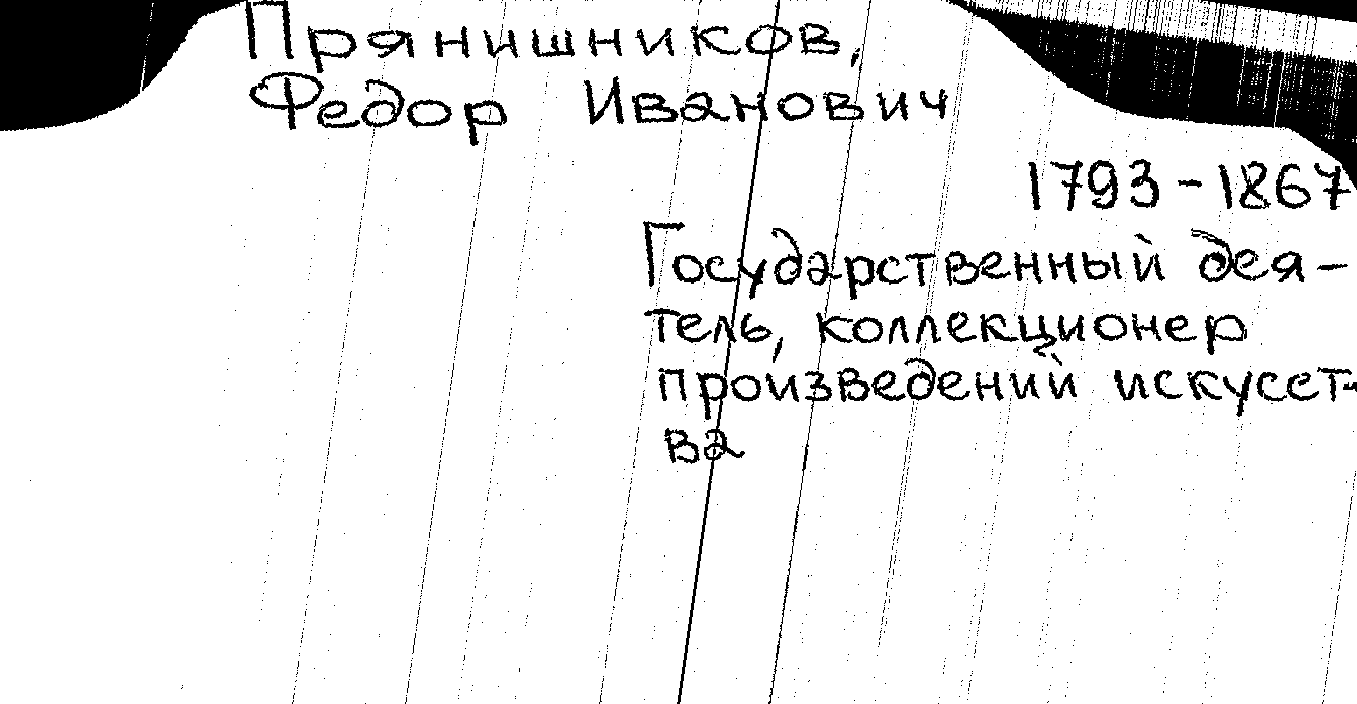 Прянишников,
Федор Иванович
1793-1867
Государственный дея-
тель, коллекционер
произведений искусст-
ва